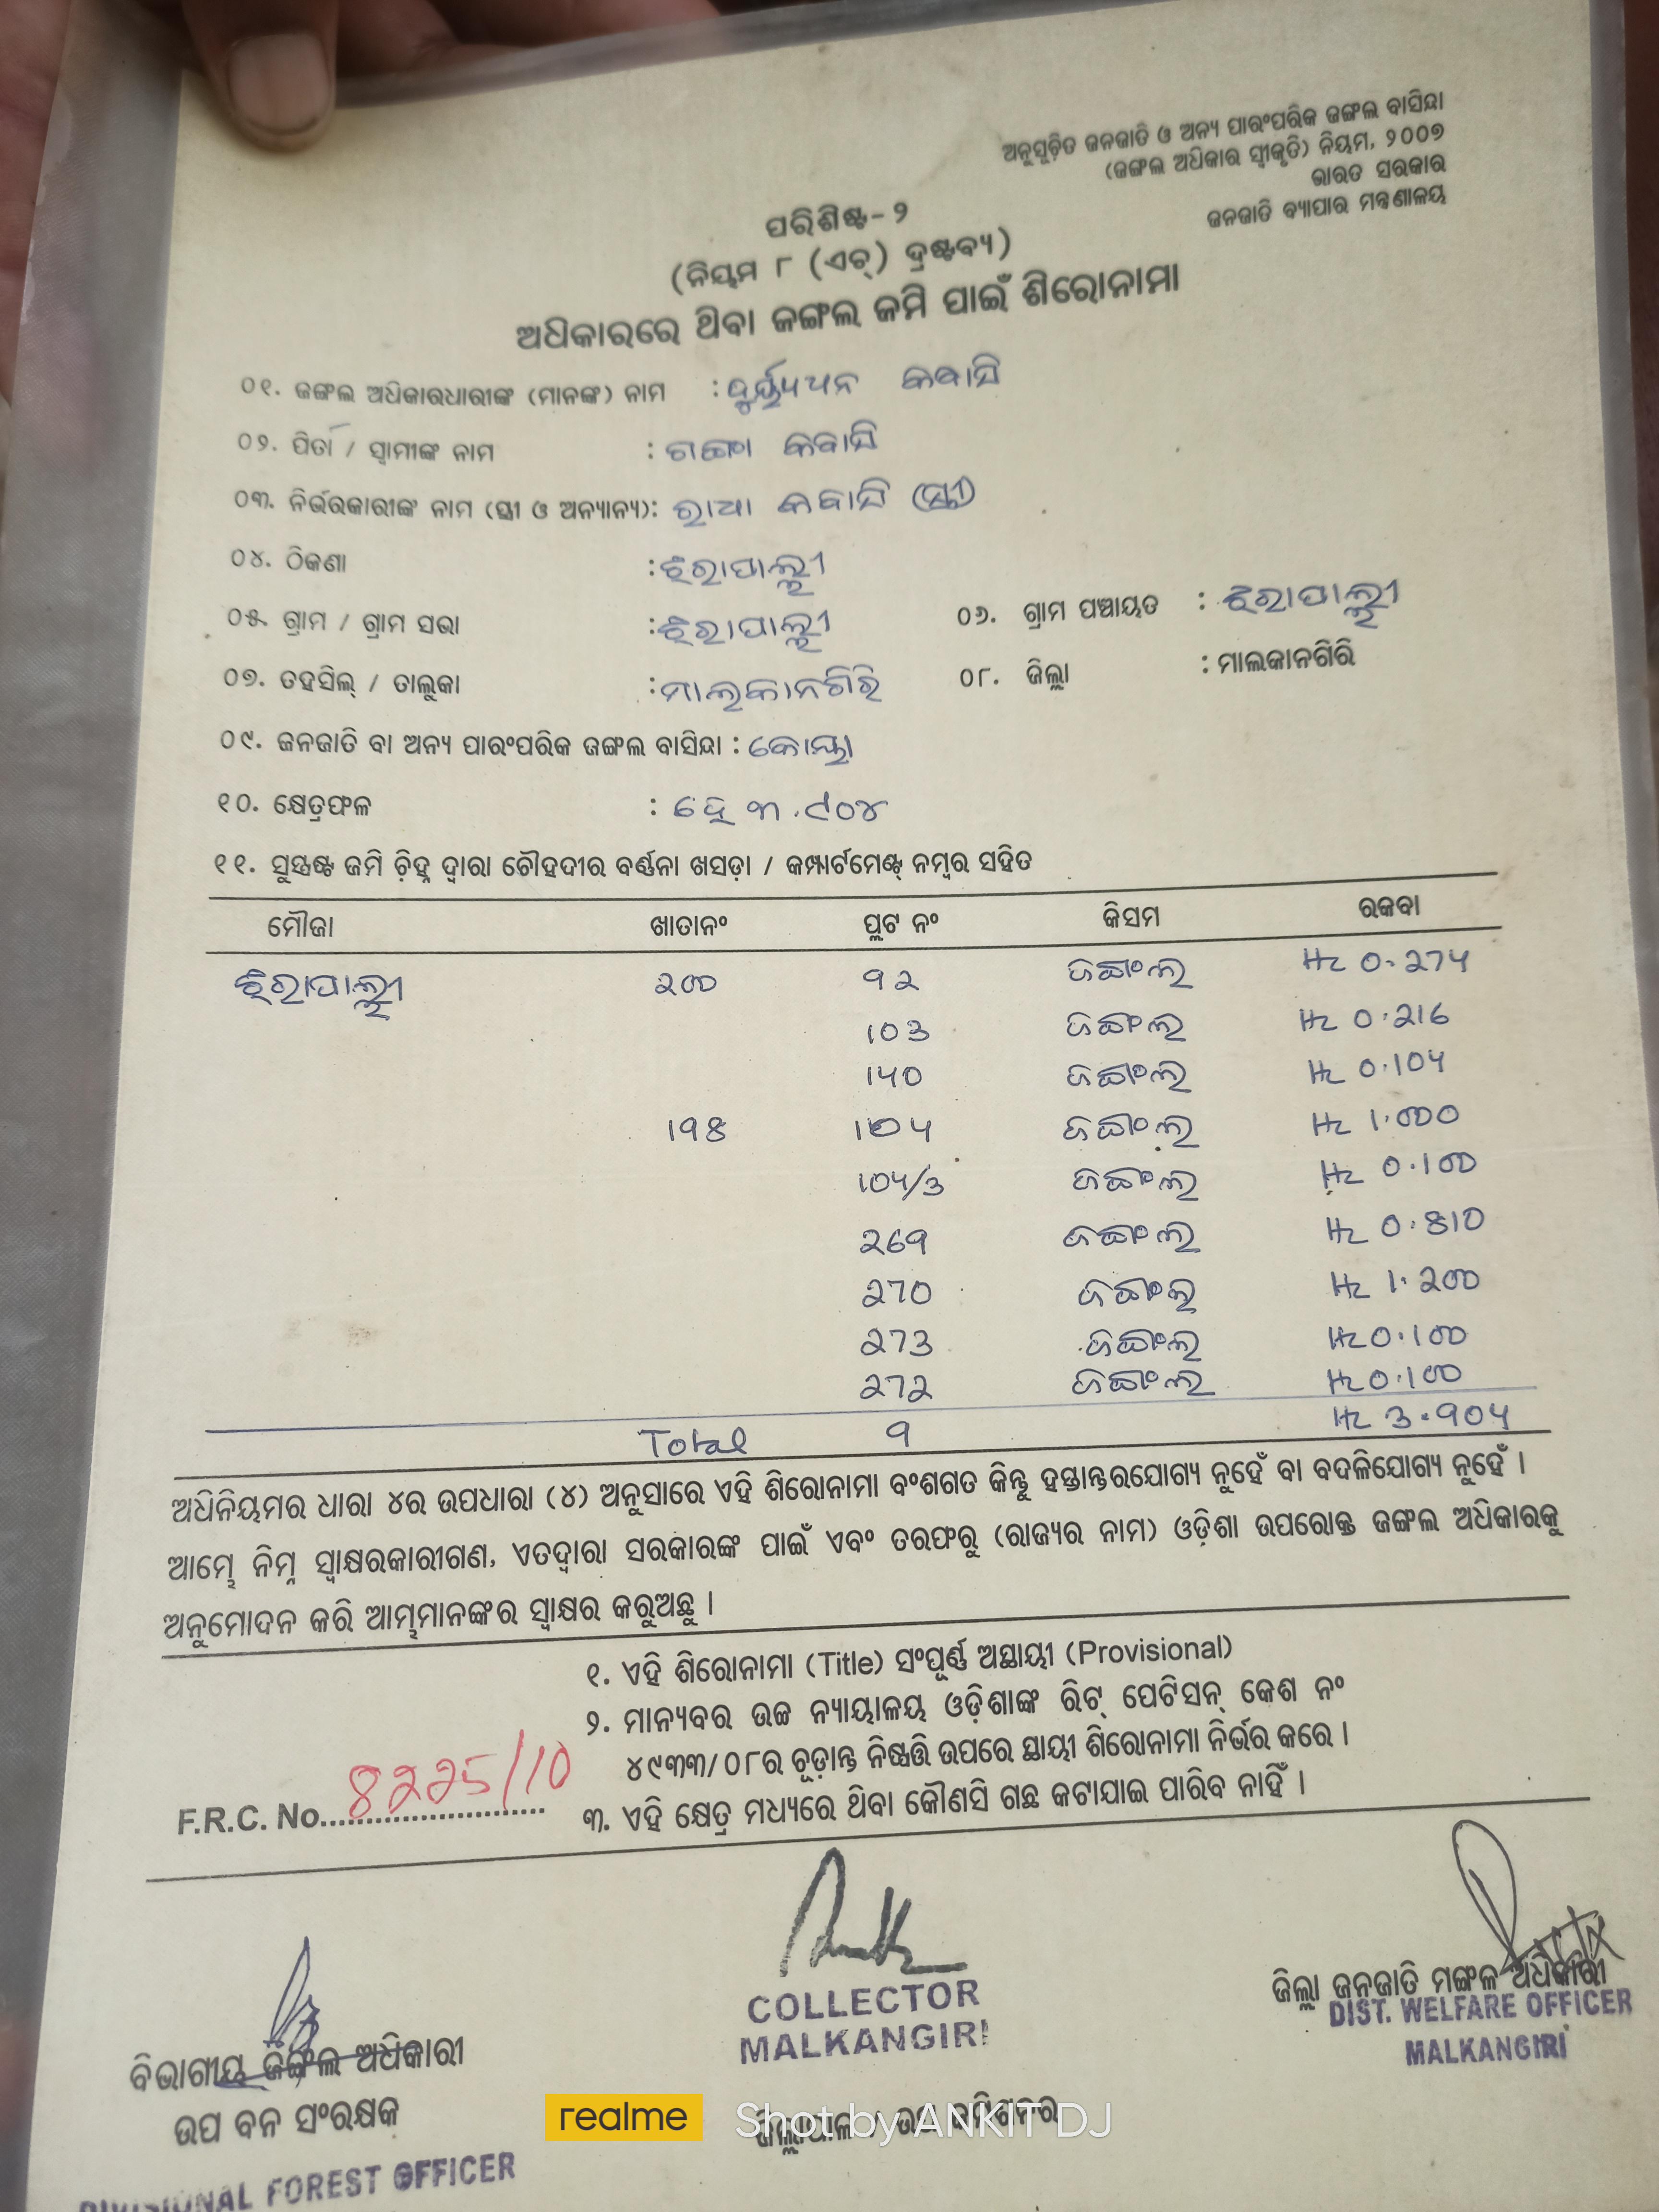 ଅନୁସୂଚିତ ଜନଜାତି ଓ ଅନ୍ୟ ପାରଂପରିକ ଜଙ୍ଗଲ ବାସିନ୍ଦା
(ଜଙ୍ଗଲ ଅଧିକାର ସ୍ୱୀକୃତି) ନିୟମ, ୨୦୦୭
ଭାରତ ସରକାର
ଜନଜାତି ବ୍ୟାପାର ମନ୍ତ୍ରଣାଳୟ
ପରିଶିଷ୍ଟ-୨
(ନିୟମ ୮ (ଏଚ୍) ଦ୍ରଷ୍ଟବ୍ୟ)
ଅଧିକାରରେ ଥିବା ଜଙ୍ଗଲ ଜମି ପାଇଁ ଶିରୋନାମା
୦୧. ଜଙ୍ଗଲ ଅଧିକାରଧାରୀଙ୍କ (ମାନଙ୍କ) ନାମ : କବାସି
୦୨. ପିତା / ସ୍ୱାମୀଙ୍କ ନାମ : ଗଙ୍ଗା କବାସି
୦୩. ନିର୍ଭରକାରୀଙ୍କ ନାମ (ସ୍ତ୍ରୀ ଓ ଅନ୍ୟାନ୍ୟ): କବାସି (ସ୍ତ୍ରୀ)
୦୪. ଠିକଣା : ଝିରାପାଲ୍ଲୀ
୦୫. ଗ୍ରାମ / ଗ୍ରାମ ସଭା : ଝିରାପାଲ୍ଲୀ ୦୬. ଗ୍ରାମ ପଞ୍ଚାୟତ : ଝିରାପାଲ୍ଲୀ
୦୭. ତହସିଲ୍ / ତାଲୁକା : ମାଲକାନଗିରି ୦୮. ଜିଲ୍ଲା : ମାଲକାନଗିରି
୦୯. ଜନଜାତି ବା ଅନ୍ୟ ପାରଂପରିକ ଜଙ୍ଗଲ ବାସିନ୍ଦା : କୋୟା
୧୦. କ୍ଷେତ୍ରଫଳ : ହେ ୩.୯୦୪
୧୧. ସୁସ୍ପଷ୍ଟ ଜମି ଚିହ୍ନ ଦ୍ୱାରା ଚୌହଦୀର ବର୍ଣ୍ଣନା ଖସଡ଼ା / କମ୍ପାର୍ଟମେଣ୍ଟ ନମ୍ବର ସହିତ
ମୌଜା ଖାତାନଂ ପ୍ଲଟ ନଂ କିସମ ରକବା
ଝିରାପାଲ୍ଲୀ 200 92 ଜଙ୍ଗଲ Hc 0.274
103 ଜଙ୍ଗଲ Hc 0.216
140 ଜଙ୍ଗଲ Hc 0.104
198 104 ଜଙ୍ଗଲ Hc 1.000
104/3 ଜଙ୍ଗଲ Hc 0.100
269 ଜଙ୍ଗଲ Hc 0.810
270 ଜଙ୍ଗଲ Hc 1.200
273 ଜଙ୍ଗଲ Hc 0.100
272 ଜଙ୍ଗଲ Hc 0.100
Total 9 Hc 3.904
ଅଧିନିୟମର ଧାରା ୪ର ଉପଧାରା (୪) ଅନୁସାରେ ଏହି ଶିରୋନାମା ବଂଶଗତ କିନ୍ତୁ ହସ୍ତାନ୍ତରଯୋଗ୍ୟ ନୁହେଁ ବା ବଦଳିଯୋଗ୍ୟ ନୁହେଁ ।
ଆମ୍ଭେ ନିମ୍ନ ସ୍ୱାକ୍ଷରକାରୀଗଣ, ଏତଦ୍ୱାରା ସରକାରଙ୍କ ପାଇଁ ଏବଂ ତରଫରୁ (ରାଜ୍ୟର ନାମ) ଓଡ଼ିଶା ଉପରୋକ୍ତ ଜଙ୍ଗଲ ଅଧିକାରକୁ
ଅନୁମୋଦନ କରି ଆମ୍ଭମାନଙ୍କର ସ୍ୱାକ୍ଷର କରୁଅଛୁ ।
୧. ଏହି ଶିରୋନାମା (Title) ସଂପୂର୍ଣ୍ଣ ଅସ୍ଥାୟୀ (Provisional)
୨. ମାନ୍ୟବର ଉଚ୍ଚ ନ୍ୟାୟାଳୟ ଓଡ଼ିଶାଙ୍କ ରିଟ୍ ପେଟିସନ୍ କେଶ ନଂ
୪୯୩୩/୦୮ର ଚୂଡ଼ାନ୍ତ ନିଷ୍ପତ୍ତି ଉପରେ ସ୍ଥାୟୀ ଶିରୋନାମା ନିର୍ଭର କରେ ।
୩. ଏହି କ୍ଷେତ୍ର ମଧ୍ୟରେ ଥିବା କୌଣସି ଗଛ କଟାଯାଇ ପାରିବ ନାହିଁ ।
F.R.C. No. 8225/10
COLLECTOR
MALKANGIRI
ଜିଲ୍ଲା ଜନଜାତି ମଙ୍ଗଳ ଅଧିକାରୀ
DIST. WELFARE OFFICER
MALKANGIRI
ବିଭାଗୀୟ ଜଙ୍ଗଲ ଅଧିକାରୀ
ଉପ ବନ ସଂରକ୍ଷକ
DIVISIONAL FOREST OFFICER
realme Shot by ANKIT DJ